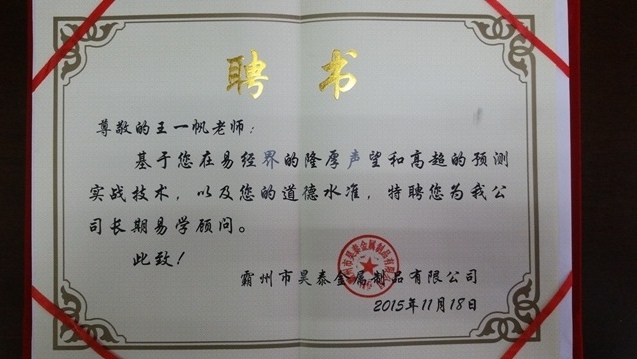 聘书
尊敬的王一帆老师：
基于您在易经界的隆厚声望和高超的预测
实战技术，以及您的道德水准，特聘您为我公
司长期易学顾问。
此致！
霸州市昊泰金属制品有限公司
2015年11月18日